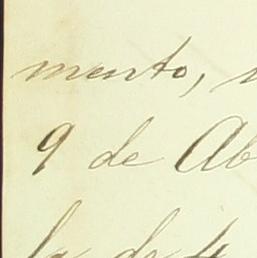 mento,
9 de Ab
la de 4